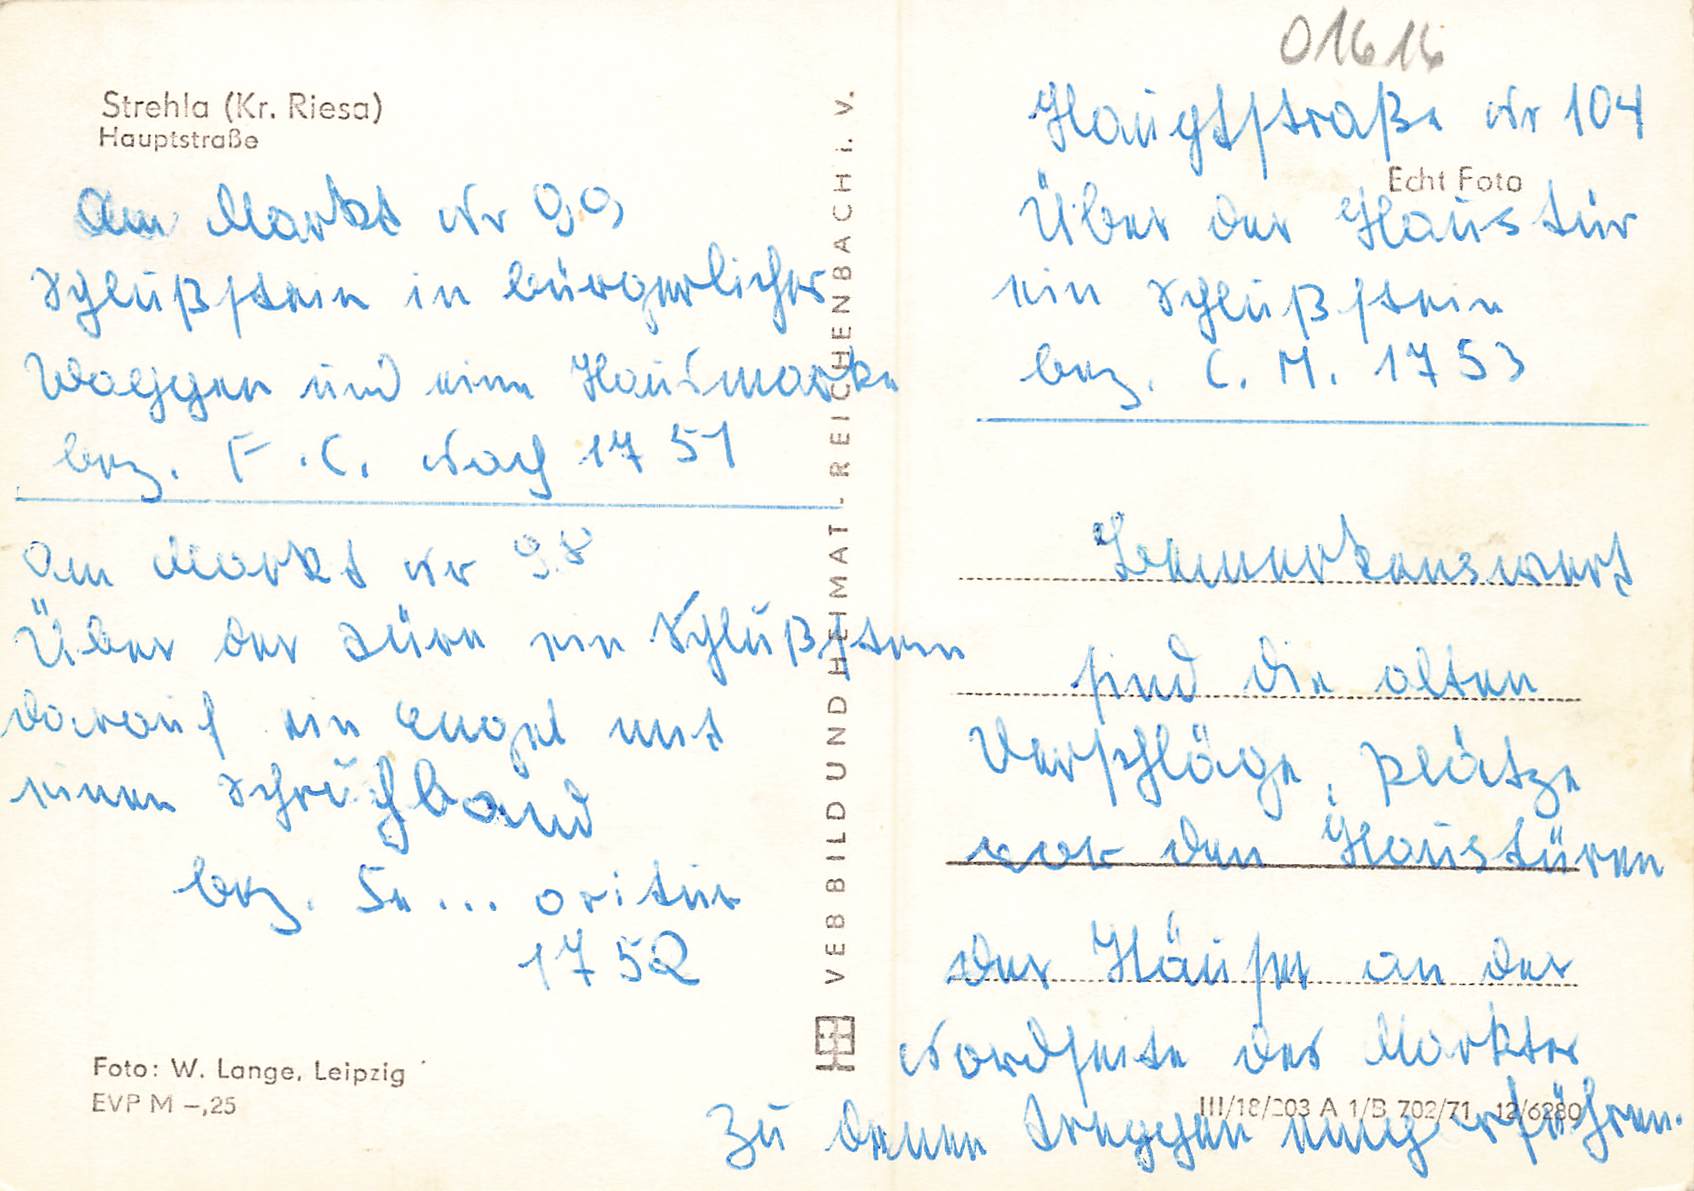 01616
Strehla (Kr. Riesa)
Hauptstraße
Am Markt Nr 99
Schlußstein in bürgerlicher
Wappen und eine Hausmarke
bez. F. C. Nach 1751
Am Markt Nr 98
Über der Türe ein Schlußstein
darauf ein Engel mit
einen Schriftband
bez. Se... oritur
1752
Foto: W. Lange, Leipzig
EVP M –,25
VEB BILD UND HEIMAT - REICHENBACH i. V.
Hauptstraße Nr 104
Echt Foto
Über der Haustür
ein Schlußstein
bez. C. M. 1753
Bemerkenswert
sind die alten
Verschläge, Plätze
vor den Haustüren
der Häuser an der
Nordseite des Marktes
III/18/203 A 1/B 702/71 12/6280
Zu denen treppen